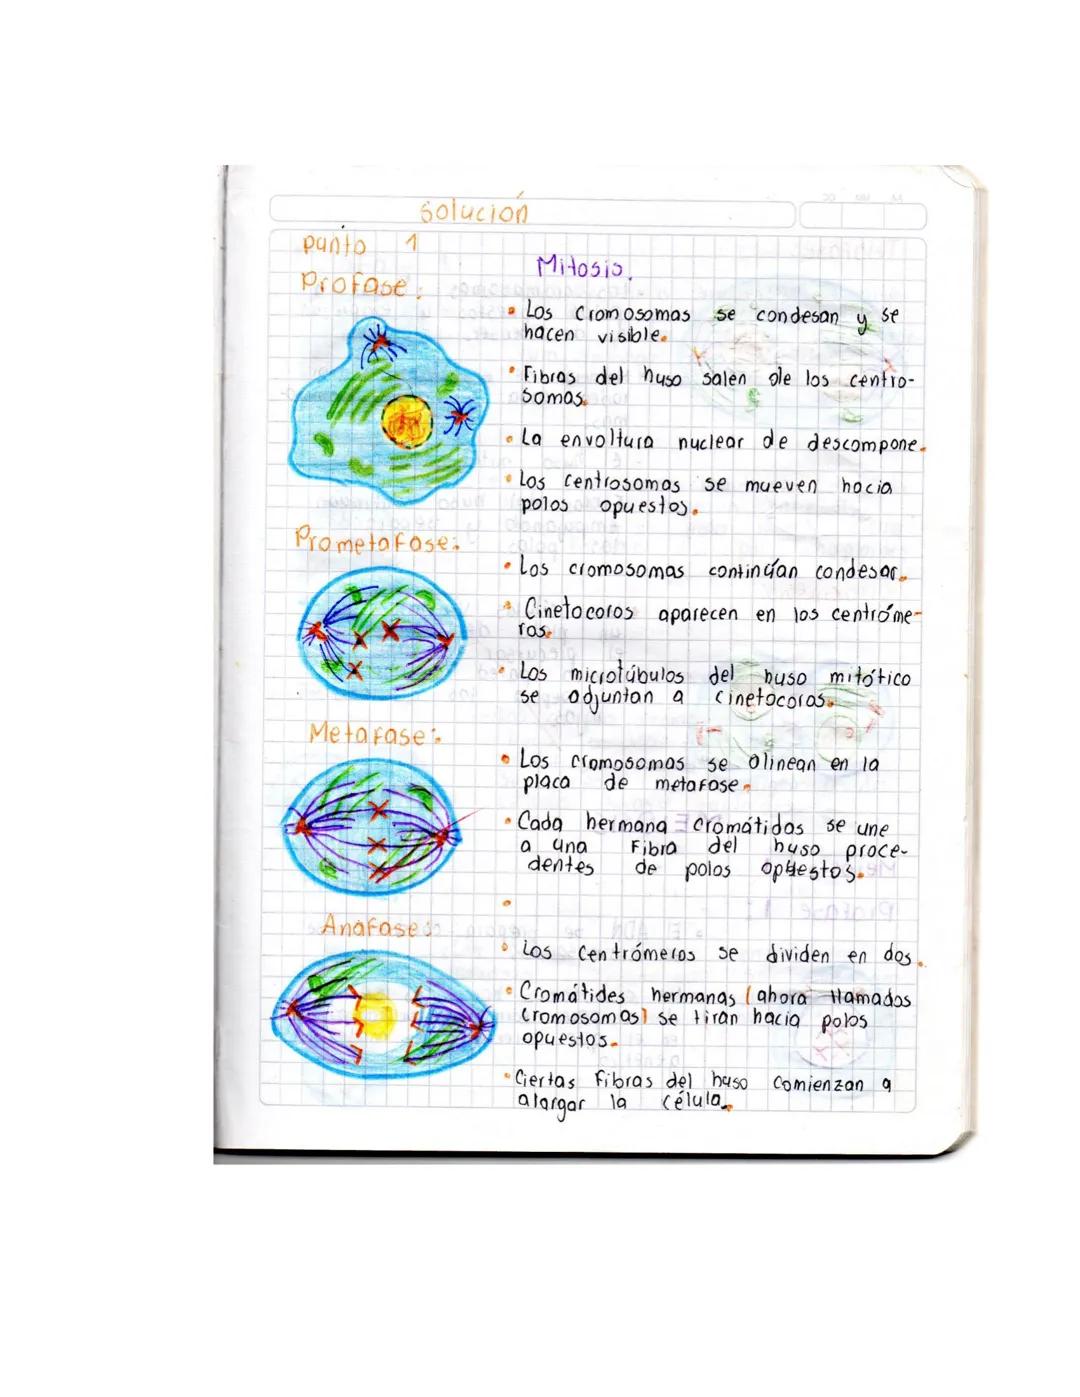 solución
punto 1
Mitosis.
Profase:
• Los cromosomas se condesan y se
hacen visible.
• Fibras del huso salen de los centro-
somas.
• La envoltura nuclear de descompone.
• Los centrosomas se mueven hacia
polos opuestos.
Prometafase:
• Los cromosomas continúan condesar.
• Cinetocoros aparecen en los centróme-
ros.
• Los microtúbulos del huso mitótico
se adjuntan a cinetocoros.
Metafase:
• Los cromosomas se alinean en la
placa de metafase.
• Cada hermana cromátidas se une
a una Fibra del huso proce-
dentes de polos opuestos.
•
Anafase:
• Los Centrómeros se dividen en dos.
• Cromátides hermanas (ahora llamados
cromosomas) se tiran hacia polos
opuestos.
• Ciertas Fibras del huso comienzan a
alargar la célula.